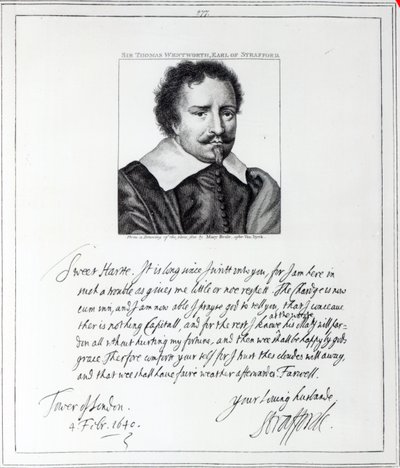 277.
SIR THOMAS WENTWORTH, EARL OF STRAFFORD.
From a drawing of the same size by Mary Beale, after Van Dyck.
Sweet Harte. It is long since I writt unto you, for I am here in
such a trouble as gives me little or noe respett. The chardge is now
cum inn, and I am now able I prayse god to tell you, that I conceaue
ther is nothing Capitall, and for the rest I knowe
at the worste
his Ma.ty will par-
don all without hurting my fortune, and then wee shall be happy by gods
grace. Therfore comfort your self, for I trust thes cloudes will away,
and that wee shall haue faire weather afterwardes. Farewell.
Your loving husbande
Tower of London.
4 Febr. 1640.
Strafforde.